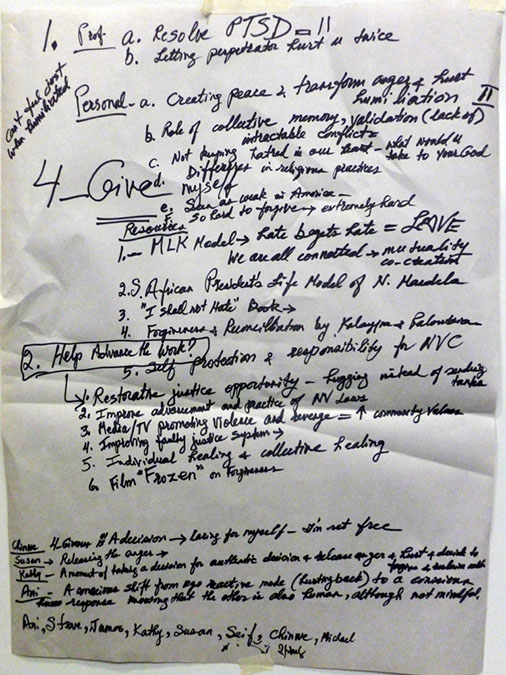 1. Prof a. Resolve PTSD = ||
b. Letting perpetrator hurt u twice
Can't feel just when humiliated
Personal - a. Creating peace & transform anger & hurt
humiliation ||
b. Role of collective memory, validation (lack of)
intractable conflict
c. Not keeping hatred in our heart - what would u
take to your God
d. Differences in religious practices
4 - Give myself
e. Seen as weak in America -
f. So hard to forgive → extremely hard
Resources
1. - MLK Model → hate begets hate = LEAVE
We are all connected → mutuality
co-creation
2. S. African President's Life Model of N. Mandela
3. "I shall not Hate" Book →
4. Forgiveness & Reconciliation by
5. Self protection & responsibility for NVC
2. Help Advance the Work?
1. Restorative justice opportunity - hugging instead of sending
2. Improve advancement and practice of NV laws
3. Media/TV promoting violence and revenge = ↑ community values
4. Improving faulty justice system →
5. Individual healing & collective healing
6. Film "Frozen" on Forgiveness
Chinwe 4-Giveness A decision → caring for myself - I'm set free
Susan → Releasing the anger →
Kathy - A moment of taking a decision for authentic decision & release anger & hurt & decide to
forgive &
Ani - A conscious shift from ego reactive mode (hurting back) to a conscious
response knowing that the other is also human, although not mindful.
Ani, Steve, James, Kathy, Susan, Seif, Chinwe, Michael